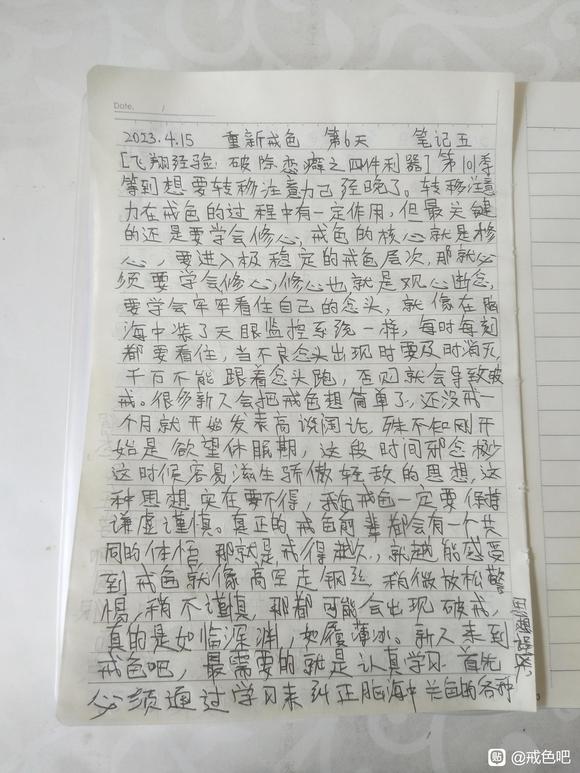 Date. /
2023.4.15 重新戒色 第6天 笔记五
[飞翔经验:破除恋癖之四件利器]第101季
等到想要转移注意力已经晚了。转移注意
力在戒色的过程中有一定作用,但最关键
的还是要学会修心,戒色的核心就是修
心,要进入极稳定的戒色层次,那就必
须要学会修心,修心也就是观心断念,
要学会牢牢看住自己的念头,就像在脑
海中装了天眼监控系统一样,每时每刻
都要看住,当不良念头出现时要及时消灭,
千万不能跟着念头跑,否则就会导致破
戒。很多新人会把戒色想简单了,还没戒一
个月就开始发表高谈阔论,殊不知刚开
始是欲望休眠期,这段时间邪念较少
这时候容易滋生骄傲轻敌的思想,这
种思想实在要不得,我们戒色一定要保持
谦虚谨慎。真正的戒色前辈都会有一个共
同的体悟,那就是戒得越久,就越能感受
到戒色就像高空走钢丝,稍微放松警
惕,稍不谨慎,那都可能会出现破戒,
真的是如临深渊,如履薄冰。新人来到
戒色吧,最需要的就是认真学习,首先
必须通过学习来纠正脑海中关于色的各种
思想误区
贴 @戒色吧